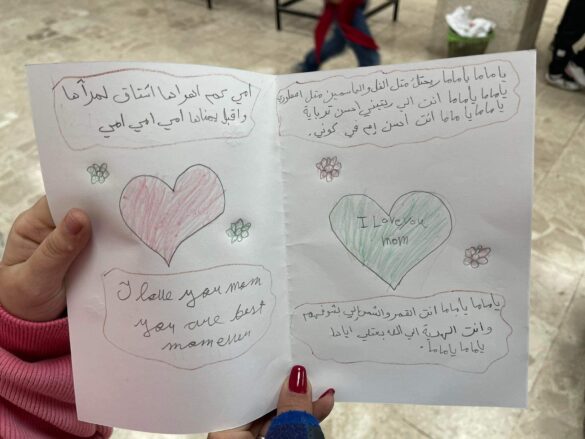 امي كم اهواها اشتاق لمرآها
واقبل يمناها امي امي امي
I love you mom
you are best
mom
ياماما ياماما ريحتك متل الفل والياسمين متل العطور
ياماما ياماما انت الي ربيتيني احسن ترباية
ياماما يا ماما انت احسن إم في كوني.
I Love you
mom
ياماما ياماما انت القمر والشمس الي بشوفهم
وانت الهدية الي الله بعتلي اياها
ياماما ياماما.